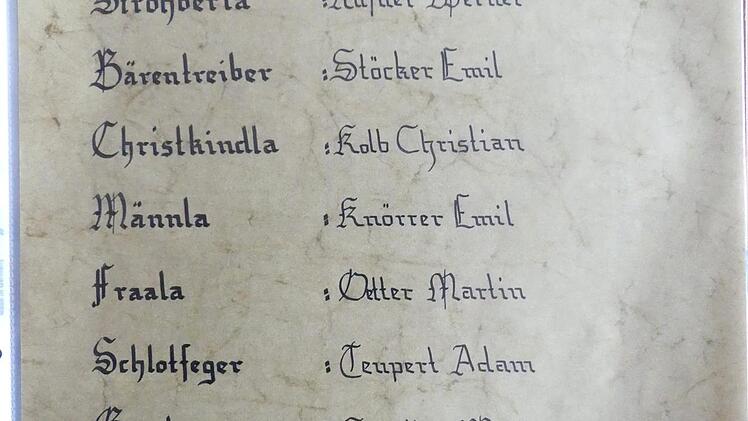 Strohberla
Bärentreiber :Stöcker Emil
Christkindla :Kolb Christian
Männla :Knörrer Emil
Fraala :Oetter Martin
Schlotfeger :Teupert Adam